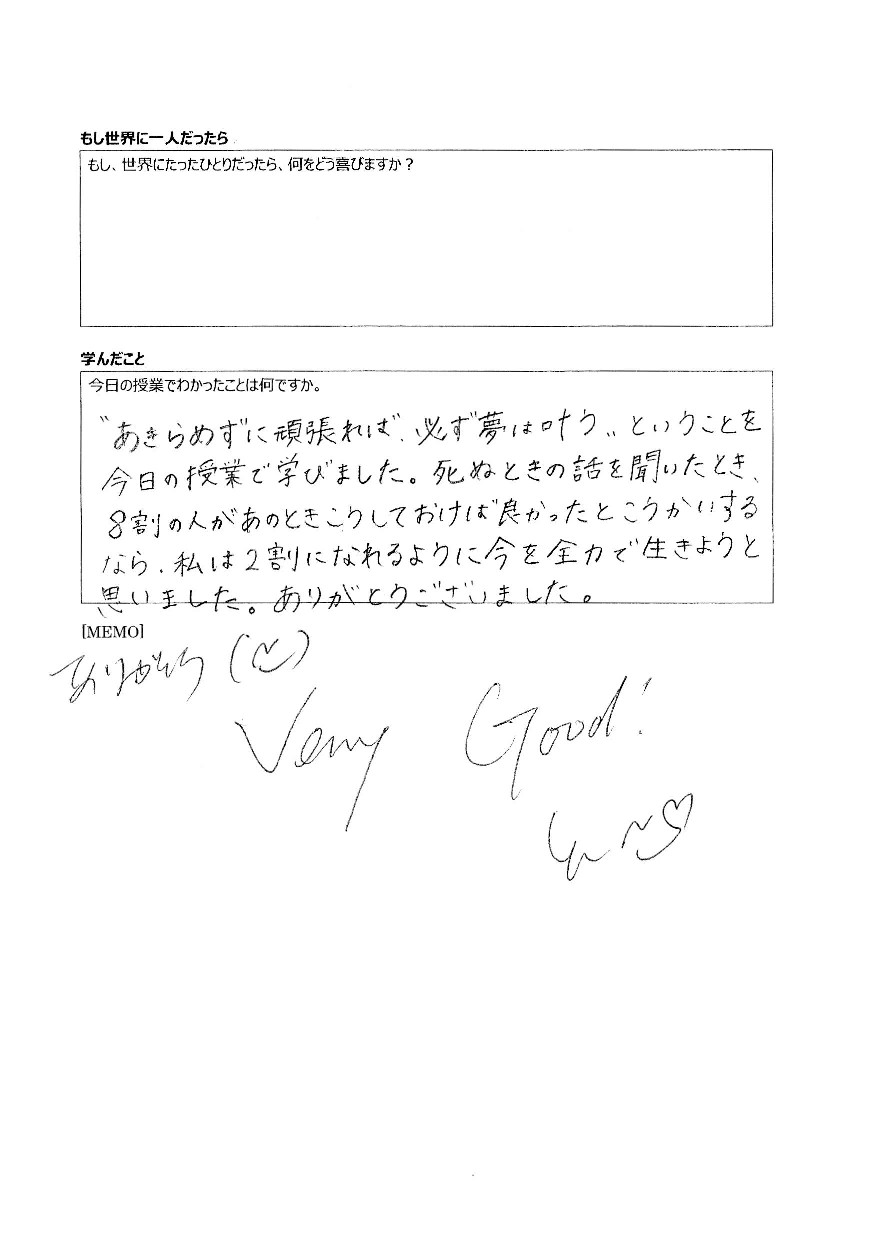 もし世界に一人だったら
もし、世界にたったひとりだったら、何をどう喜びますか？
学んだこと
今日の授業でわかったことは何ですか。
〝あきらめずに頑張れば、必ず夢は叶う〟ということを
今日の授業で学びました。死ぬときの話を聞いたとき、
8割の人があのときこうしておけば良かったとこうかいする
なら、私は2割になれるように今を全力で生きようと
思いました。ありがとうございました。
[MEMO]
ありがとう
Very Good!